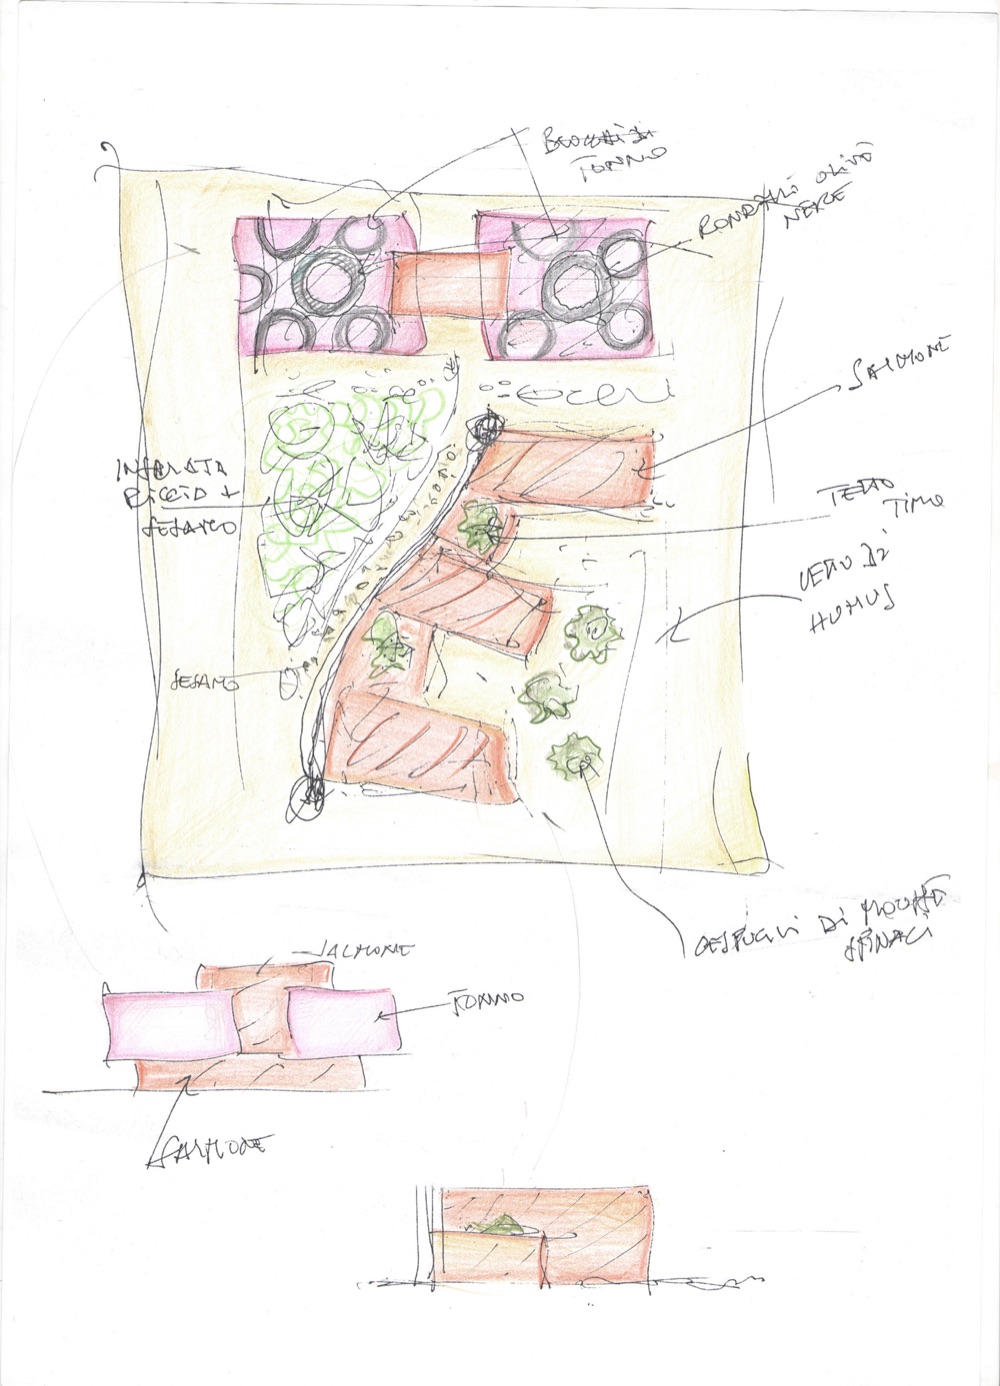 BLOCCHI DI
TONNO
RONDELLE OLIVE
NERE
SALMONE
INSALATA
RICCIA +
SESAMO
TETTO
TIMO
LETTO DI
HUMUS
SESAMO
CESPUGLI DI MOUSSE
SPINACI
SALMONE
TONNO
SALMONE